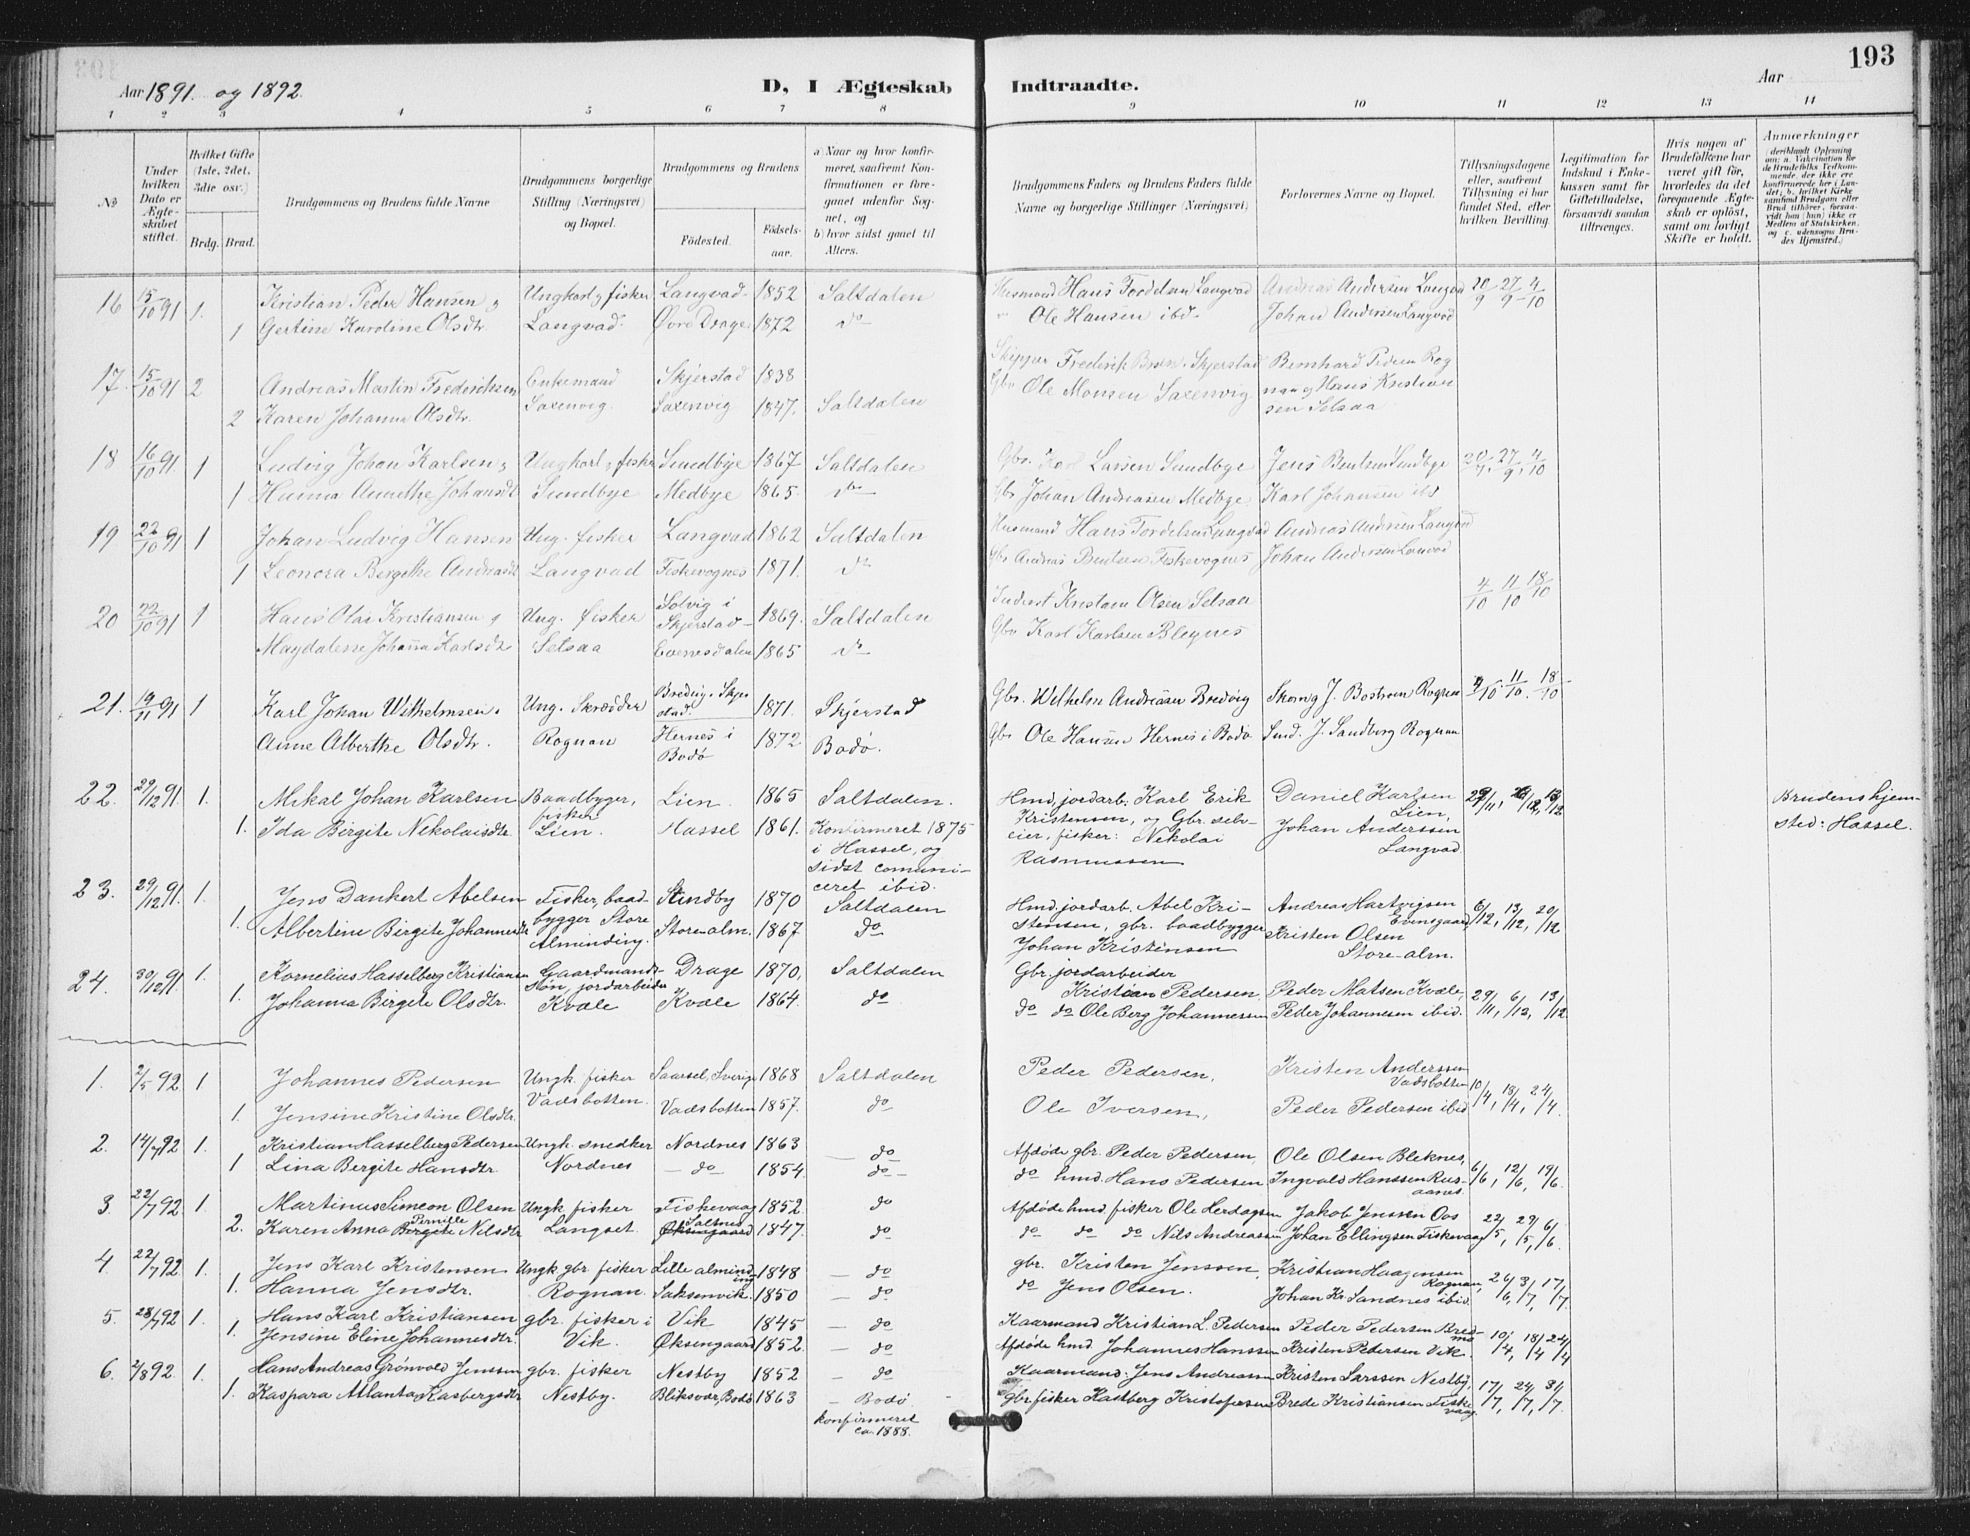 193
Aar 1891 og 1892.
D, I Ægteskab Indtraadte.
Aar
1 2 3 4 5 6 7 8 9 10 11 12 13 14
№
Under hvilken Dato er Ægteskabet stiftet.
Hvilket Gifte (1ste, 2det, 3die osv.)
Brdg. Brud.
Brudgommens og Brudens fulde Navne
Brudgommens borgerlige Stilling (Næringsvei) og Bopæl.
Brudgommens og Brudens
Fødested. Fødselsaar.
a) Naar og hvor konfirmeret, saafremt Konfirmationen er foregaaet udenfor Sognet, og
b) hvor sidst gaaet til Alters.
Brudgommens Faders og Brudens Faders fulde Navne og borgerlige Stillinger (Næringsvei)
Forlovernes Navne og Bopæl.
Tillysningsdagene eller, saafremt Tillysning ei har fundet Sted, efter hvilken Bevilling
Legitimation for Indskud i Enkekassen samt for Giftetilladelse, forsaavidt saadan tiltrænges.
Hvis nogen af Brudefolkene har været gift før, hvorledes da det foregaaende Ægteskab er opløst, samt om lovligt Skifte er holdt.
Anmærkninger
16 15/10 91 1. Kristian Peder Hansen & Ungkarl & fisker Langvad 1852 Saltdalen Husmand Hans Tordelsen Langvad Andreas Andersen Langvad 20/9 27/9 4/10
1 Gertine Karoline Olsdtr Langvad. Øvre Drage 1872 do Ole Hansen ibd. Johan Andersen Langvad
17. 15/10 91 2 Andreas Martin Frederiksen Enkemand Skjerstad 1838 Skipper Frederik Skjerstad Bernhard Rog
2 Karen Johanna Olsdtr. Saxenvig. Saxenvig 1847. Saltdalen Gbr Ole Monsen Saxenvig nan og Hans Kristian
sen Setsaa
18 16/10 91 1 Ludvig Johan Karlsen & Ungkarl & fisker Sundbye 1867 Saltdalen Gbr. Karl Larsen Sundbye Jens Bentsen Sundbye 27/9, 4/10
1 Hanna Annethe Johansdt Sundbye Medbye 1865. do Gbr Johan Andreasen Medbye. Karl Johansen
19 22/10 91 1 Johan Ludvig Hansen Ung. fisker Langvad 1862 Saltdalen Husmand Hans Tordelsen Langvad Andreas Andersen Langvad
1 Leonora Bergithe Andreasdt Langvad Fiskevognes 1871. do Gbr Andreas Bentsen Fiskevognes Johan Andersen Lanvad
20 22/10 91 1 Hans Olai Kristiansen & Ung. fisker Solvig i Skjerstad 1869. Saltdalen Inderst Kristian Olsen Setsaa 4/10 11/10 18/10
Magdalene Johanna Karlsdtr Setsaa Evenesdalen 1865 do Gbr Karl Karlsen Blegnes
21. 19/11 91 1 Karl Johan Wilhelmsen. Ung. Skrædder Bredvig. Skjerstad. 1871. Skjerstad Gbr. Wilhelm Andreasen Bredvig J. Bostrøm Rognan 4/10. 11/10. 18/10
Anne Alberthe Olsdtr. Rognan Hernes i Bodø 1872 Bodø. Gbr Ole Hansen Hernes i Bodø J. Sandberg Rognan
22. 29/12 91. 1. Mikal Johan Karlsen Baadbyger, fisker Lien. 1865 Saltdalen. Hmd. jordarb: Karl Erik Daniel Karlsen Lien, Brudens hjemsted: Hassel.
1. Ida Birgite Nikolaisdtr. Lien. Hassel 1861. Konfirmeret 1875 Kristensen, og Gbr. selveier, fisker: Nikolai Johan Anderssen Langvad
i Hassel, og sidst comuniceret ibid. Rasmussen
23. 29/12 91. 1. Jens Dankert Abelsen Fisker, baadbygger Store Sundby 1870 Saltdalen Hmd. jordarb. Abel Kristensen, gbr. baadbygger Andreas Hartvigsen Evensgaard, 6/12, 13/12, 20/12
1. Albertine Birgite Johannesdtr Alminding. Store-alm. 1867 do Johan Kristensen Kristen Olsen Store-alm.
24. 30/12 91. 1. Kornelius Hasselberg Kristiansen Gaardmandssøn, jordarbeider Drage 1870, Saltdalen Gbr. jordarbeider Kristian Pedersen, Peder Matsen Kvæle,
1. Johanna Birgite Olsdtr. Kvæle Kvæle 1864. do do do Ole Berg Johannessen Peder Johannesen ibid. 29/11, 6/12, 13/12
1. 2/5 92. 1 Johannes Pedersen Ungk. fisker Saarsel, Sverig 1868 Saltdalen Peder Pedersen, Kristen Anderssen Vadsbotten 10/4, 18/4, 24/4.
1. Jensine Kristine Olsdtr. Vadsbotten. Vadsbotten 1857. do Ole Iversen, Peder Pedersen ibid
2. 14/7 92 1. Kristian Hasselberg Pedersen Ungk. snedker Nordnes 1863 — do Afdøde gbr. Peder Pedersen, Ole Olsen Bleknes,
1 Lina Bergite Hansdtr. Nordnes — do 1854. do — do hmd. Hans Pedersen Ingvald Hanssen Rusaanes. 6/6, 12/6, 19/6.
3. 22/7 92. 1. Martinus Simeon Olsen Ungk fisker Fiskevaag 1852. do Afdøde hmd. fisker Ole Herdagsen Jakob Jenssen Oos
2. Karen Anna Bergite Pernille Nilsdtr Langset. Øksengaard Saltnes 1847. do do do do Nils Andreassen Johan Ellingsen Fiskevaag 22/5, 29/5, 6/6.
4. 22/7 92. 1. Jens Karl Kristensen. Ungk. gbr. fisker Lille alminding 1848 — do gbr. Kristen Jenssen, Kristian Haagensen Rognan, 26/6, 3/7, 17/7.
1. Hanna Jensdtr. Rognan. Saksenvik. 1850 — do do Jens Olsen. Johan Kr. Sandnes ibid.
5. 28/7 92 1. Hans Karl Kristiansen gbr. fisker i Vik 1845 — do Kaarmand Kristian L. Pedersen Peder Pedersen Bredmo
1. Jensine Eline Johannesdtr. Vik. Øksengaard 1852. — do Afdøde hmd. Johannes Hanssen Kristen Pedersen Vik. 10/4, 18/4 24/4
6. 2/8 92. 1. Hans Andreas Grønvold Jenssen gbr. fisker Nestby 1852 — do Kaarmand. Jens Andreassen Kristen Larssen Nestby,
1. Kaspara Atlanta Hasbergsdtr Nestby. Bliksvær, Bodø 1863 — Bodø gbr. fisker Hasberg Kristofersen Brede Kristiansen Fiskevaag. 17/7, 24/7, 31/7.
konfirmeret ca. 1888.